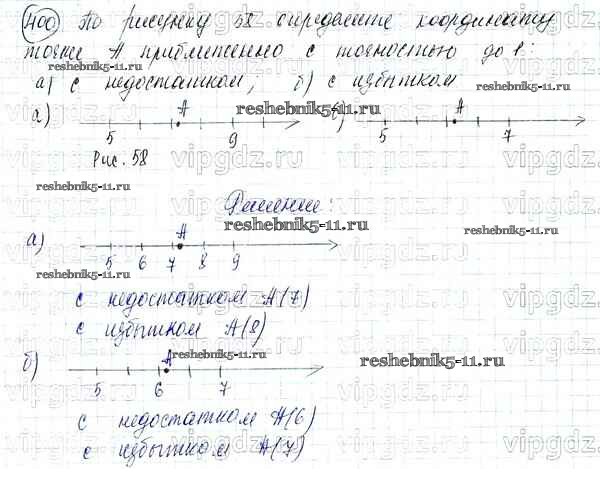 400 По рисунку 58 определите координату
точки А приближенно с точностью до 1:
reshebnik5-11.ru
а) с недостатком; б) с избытком
reshebnik5-11.ru
а) A reshebnik5-11.ru б) A
5 9 5 7
Рис. 58
vipgdz.ru
reshebnik5-11.ru
Решение:
reshebnik5-11.ru
а) A
5 6 7 8 9
reshebnik5-11.ru
с недостатком А(7)
с избытком А(8)
б) A reshebnik5-11.ru
reshebnik5-11.ru
5 6 7
с недостатком А(6)
с избытком А(7)